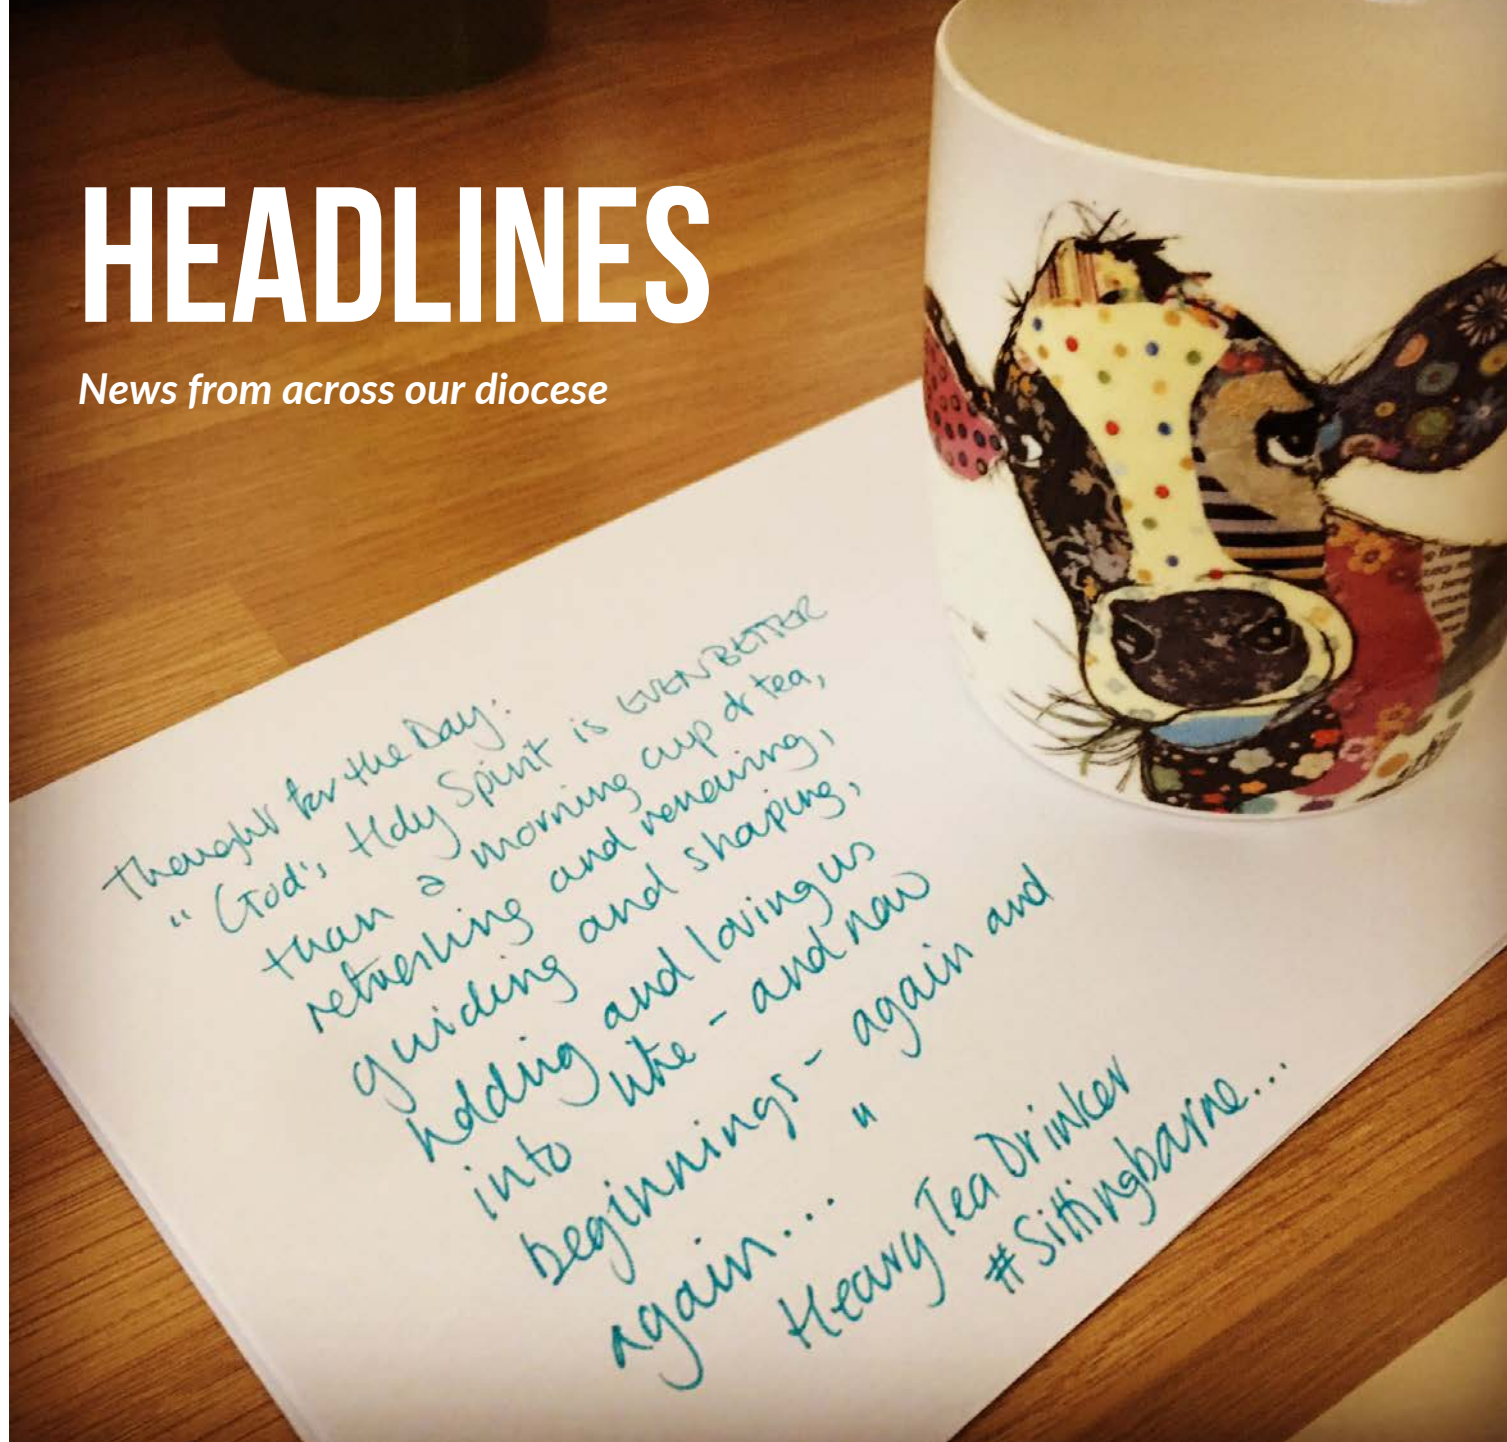 HEADLINES
News from across our diocese
Thought for the Day:
" God's Holy Spirit is EVEN BETTER
than a morning cup of tea,
refreshing and renewing,
guiding and shaping,
holding and loving us
into life - and new
beginnings - again and
again... "
Heavy Tea Drinker
#Sittingbourne...